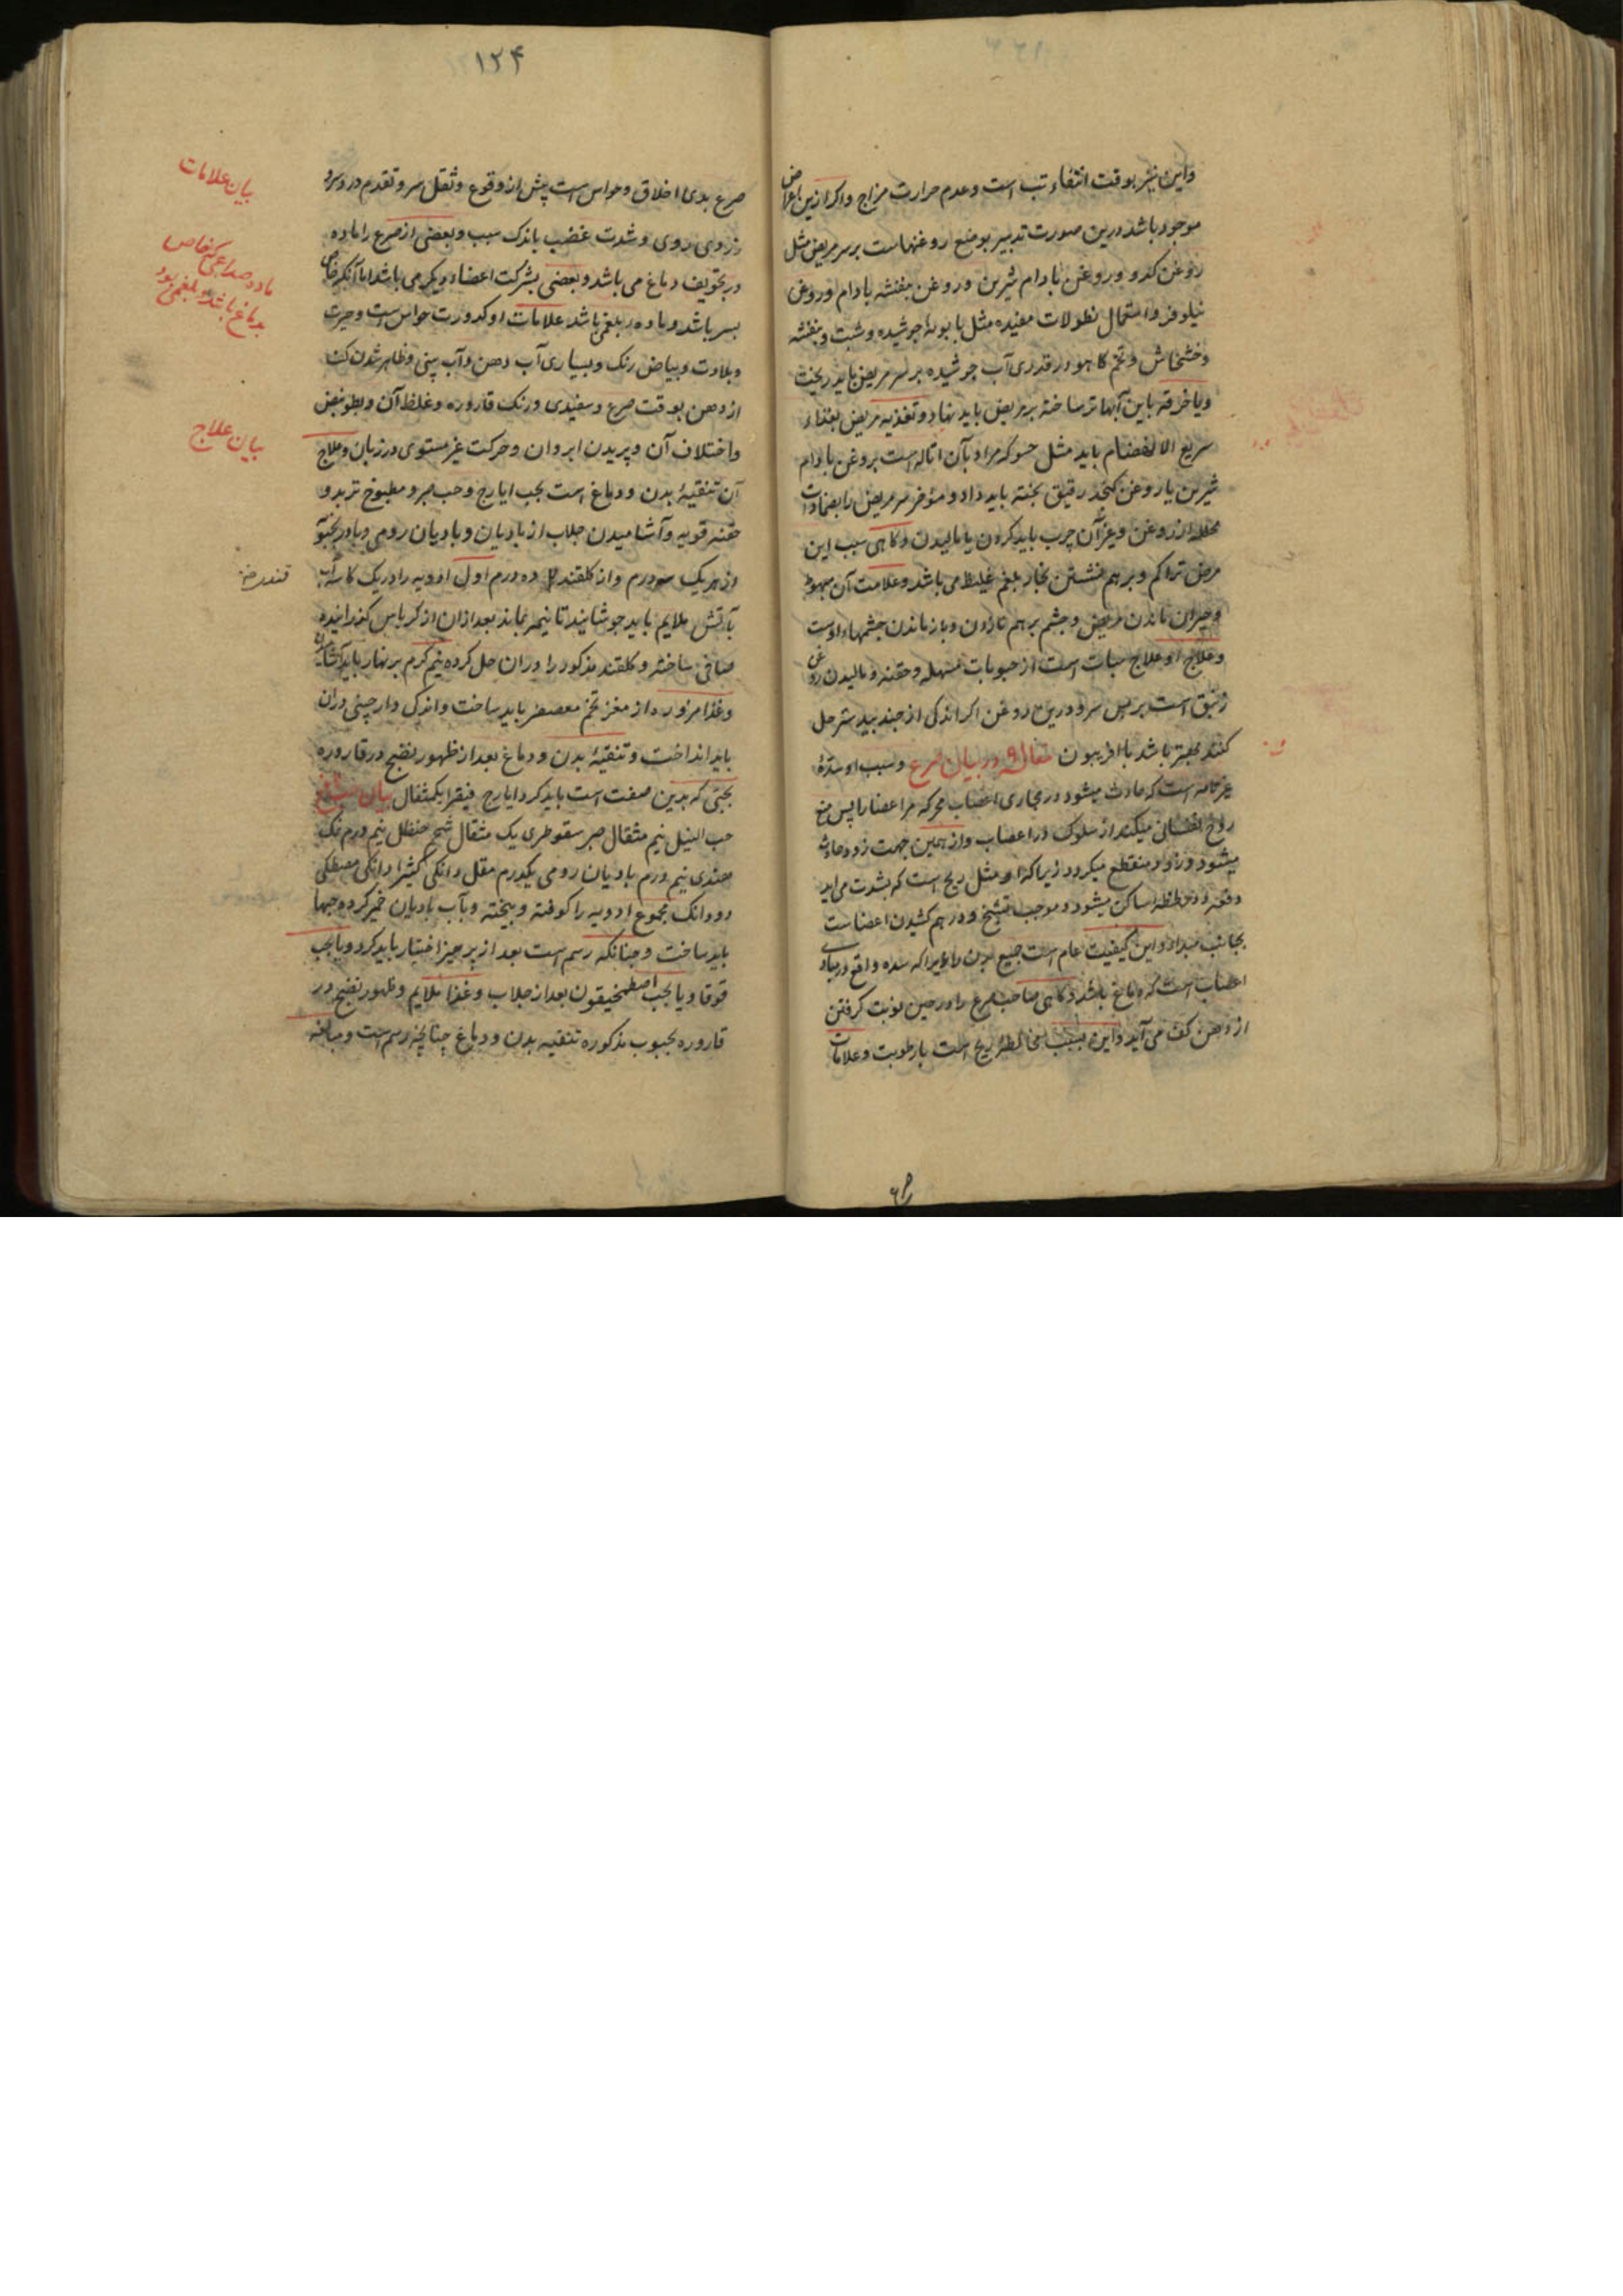 واین نیز بوقت انتفاء تب است وعدم حرارت مزاج واکر ازین اعراض
موجود باشد درین صورت تدبیر بوضع روغنهاست برسر مریض مثل
روغن کدو وروغن بادام شیرین وروغن بنفشه بادام وروغن
نیلوفر واستعمال نطولات مفیده مثل بابونۀ جوشیده وشبت وبنفشه
وخشخاش وتخم کاهو در قدری آب جوشیده برسر مریض باید ریخت
ویا خرقه باین آبها تر ساخته بر مریض باید نهاد وتغذیه مریض بغذاء
سریع الانهضام باید مثل حسو که مراد بآن اتاله است بروغن بادام
شیرین یا روغن کنجد رقیق پخته باید داد ومؤخر سر مریض را بضمادات
محلله از روغن وغیر آن چرب باید کردن یا مالیدن وکاهی سبب این
مرض تراکم وبرهم نشستن بخار بلغم غلیظ می باشد وعلامت آن مبهوت
وحیران ماندن مریض وچشم برهم نازدن وباز ماندن چشمهاء اوست
وعلاج او علاج سبات است از حبوبات مسهله وحقنه ومالیدن روغن
زنبق است بر پس سر ودرین روغن اکر اندکی از جند بیدستر حل
کنند بهتر باشد با افربیون مقاله ۹ در بیان صرع وسبب او سدۀ
غیر تامه است که حادث میشود در مجاری اعصاب محرکه مر اعضا را پس منع
روح نفسانی میکند از سلوک در اعصاب واز همین جهت زود حادث
میشود وزود منقطع میکردد زیرا که او مثل ریح است که بشدت می اید
دفعه ودر لحظه ساکن میشود وموجب تشنج ودرهم کشیدن اعضاست
بجانب مبداء واین کیفیت عام است جمیع بدن را زیرا که سده واقع در مبادی
اعصاب است که دماغ باشد وکاهی صاحب صرع را در حین نوبت کرفتن
از دهن کف می آید واین بسبب مخالطۀ ریح است با رطوبت وعلامات
۱۲۴
صرع بدی اخلاق وحواس است پیش از وقوع وثقل سر وتقدم درد سر و
زردی روی وشدت غضب باندک سبب وبعضی از صرع را ماده
در تجویف دماغ می باشد وبعضی بشرکت اعضاء دیکر می باشد اما آنکه خاص
بسر باشد وماده بلغمی باشد علامات او کدورت حواس است وحیرت
وبلادت وبیاض رنک وبسیاری آب دهن وآب بینی وظاهر شدن کف
از دهن بوقت صرع وسفیدی ورنک قاروره وغلظ آن وبطو نبض
واختلاف آن وپریدن ابروان وحرکت غیر مستوی در زبان وعلاج
آن تنقیۀ بدن ودماغ است بحب ایارج وحب صبر ومطبوخ تربد و
حقنه قویه وآشامیدن جلاب از بادیان وبادیان رومی وبادرنجبو
از هر یک سه درم واز کلقند ده درم اول ادویه را در یک کاسۀ آب
بآتش ملایم باید جوشانید تا نیمه بماند بعد ازان از کرباس کذرانیده
صافی ساخته وکلقند مذکور را دران حل کرده نیم کرم بر نهار باید آشامیدن
وغذا مزوره از مغز تخم معصفر باید ساخت واندک دارچینی دران
باید انداخت وتنقیۀ بدن ودماغ بعد از ظهور نضج در قاروره
بحبی که بدین صفت است باید کرد ایارج فیقرا یکمثقال بیان
حب النیل نیم مثقال صبر سقوطری یک مثقال شحم حنظل نیم درم نمک
هندی نیم درم بادیان رومی یکدرم مقل دانکی کثیرا دانکی مصطکی
دو دانک مجموع ادویه را کوفته وبیخته وبآب بادیان خمیر کرده حبها
باید ساخت وچنانکه رسم است بعد از پرهیز اختیار باید کرد ویا بحب
قوقا ویا بحب اصطمخیقون بعد از جلاب وغذا ملایم وظهور نضج در
قاروره بحبوب مذکوره تنقیه بدن ودماغ چنانچه رسم است ومبالغه
بیان علامات
ماده صداعی که خاص
بدماغ باشد وبلغمی بود
بیان علاج